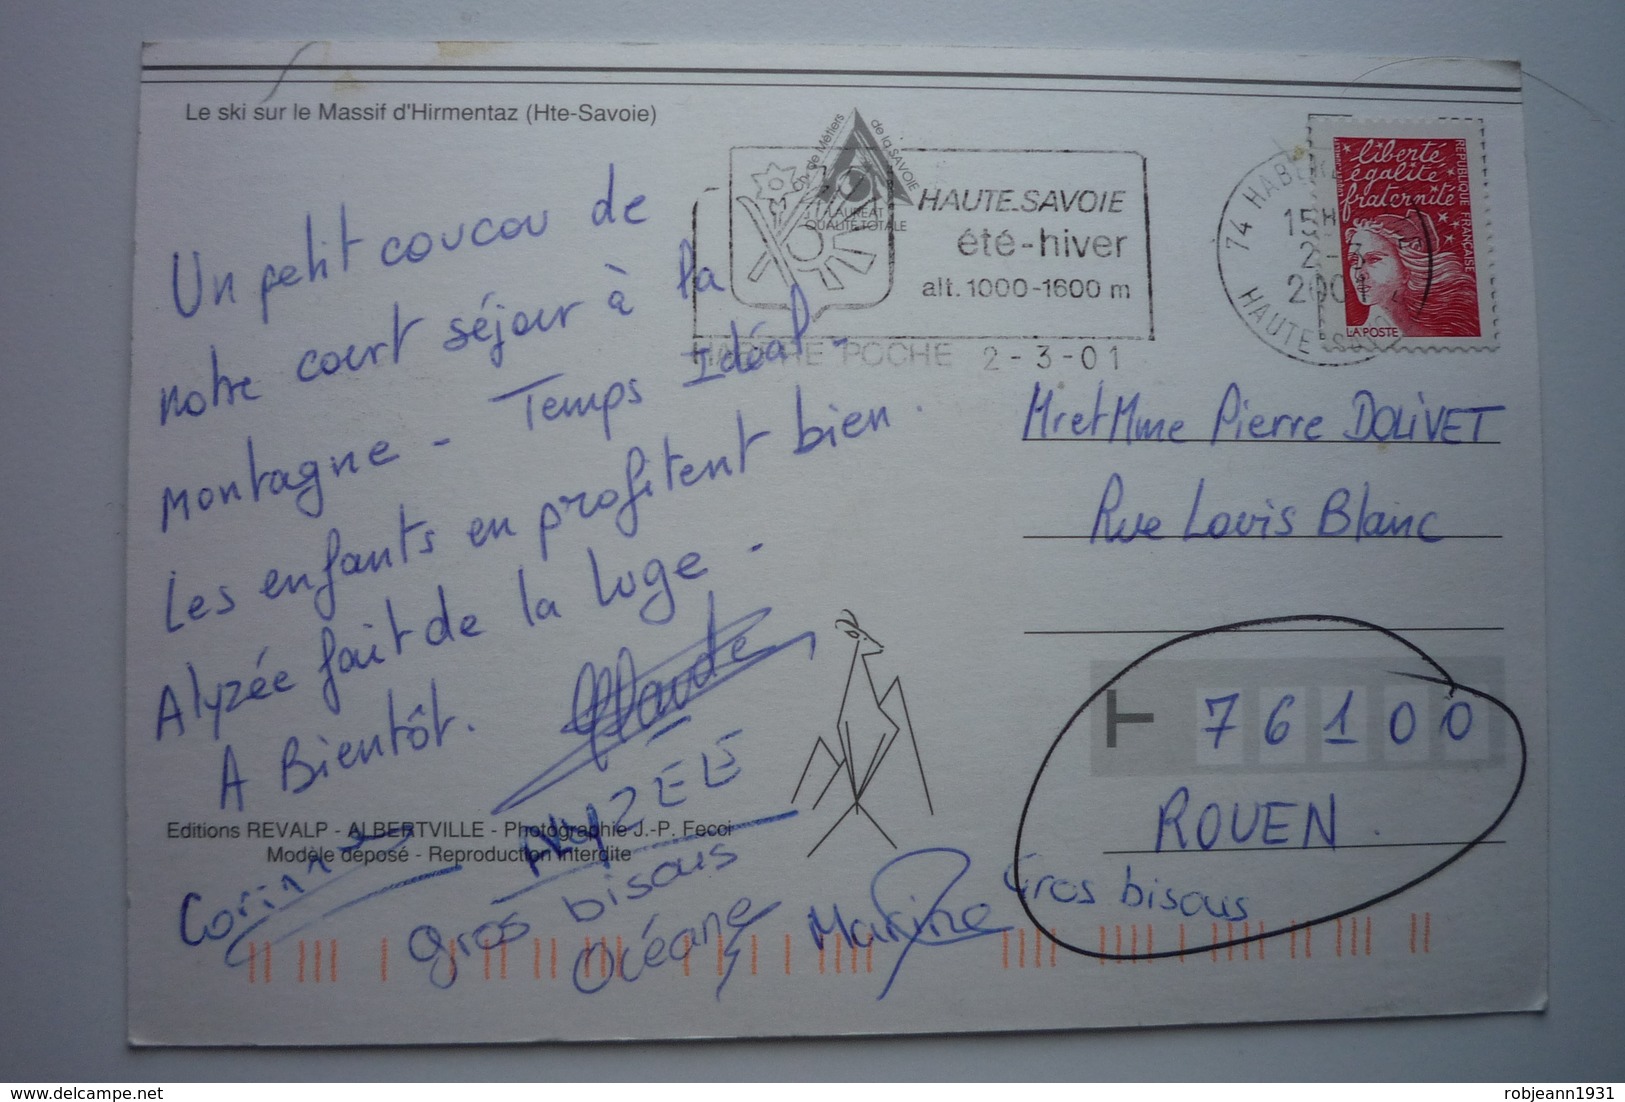 Le ski sur le Massif d'Hirmentaz (Hte-Savoie)
de Métiers
de la SAVOIE
LAURÉAT
QUALITÉ TOTALE
HAUTE-SAVOIE
été-hiver
alt. 1000-1600 m
POCHE 2-3-01
74
15H
2-3
2001
HAUTE-SAVOIE
liberté
égalité
fraternité
RÉPUBLIQUE FRANÇAISE
LA POSTE
Un petit coucou de
notre court séjour à la
montagne - Temps Idéal -
Les enfants en profitent bien.
Alyzée fait de la luge -
A Bientôt.
Mr et Mme Pierre DOLIVET
Rue Louis Blanc
76100
ROUEN
Editions REVALP - ALBERTVILLE - Photographie J.-P. Fecci
Modèle déposé - Reproduction interdite
ALYZÉE
Corinne
gros bisous
Océane
Marine
Gros bisous
delcampe.net
robjeann1931